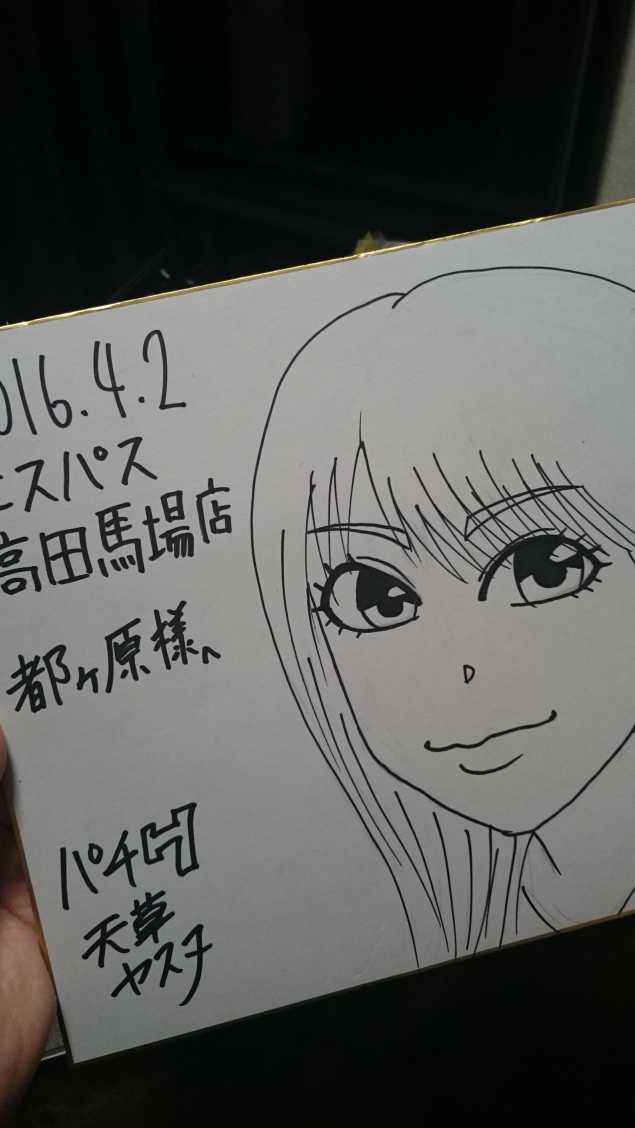 2016.4.2
エスパス
高田馬場店
都ヶ原様へ
パチH
天草
ヤスヲ